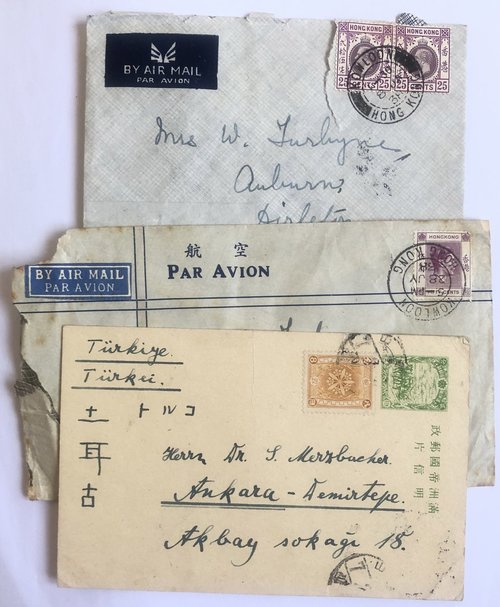 BY AIR MAIL
PAR AVION
HONG KONG
HONG KONG
25 CENTS 25
KOWLOON
HONG KONG
Mrs W. Turbyne
Auburn
航空
PAR AVION
BY AIR MAIL
PAR AVION
HONGKONG
KOWLOON
HONG KONG
Türkiye.
Türkei.
トルコ
土耳古
滿洲帝國郵政
明信片
Herrn Dr. S. Merzbacher.
Ankara - Demirtepe.
Akbay sokağı 18.